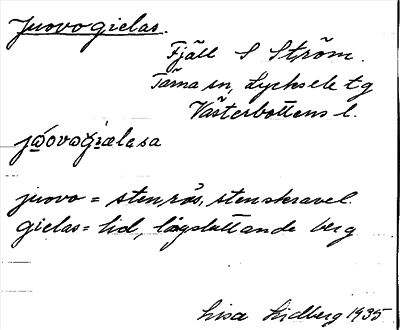 Juovogielas.
Fjäll S Ström.
Tärna sn, Lycksele tg
Västerbottens l.
jåovogielasa
juovo = sten,rös, stenskravel.
gielas = lid, lågsluttande berg
Lisa Lidberg 1935